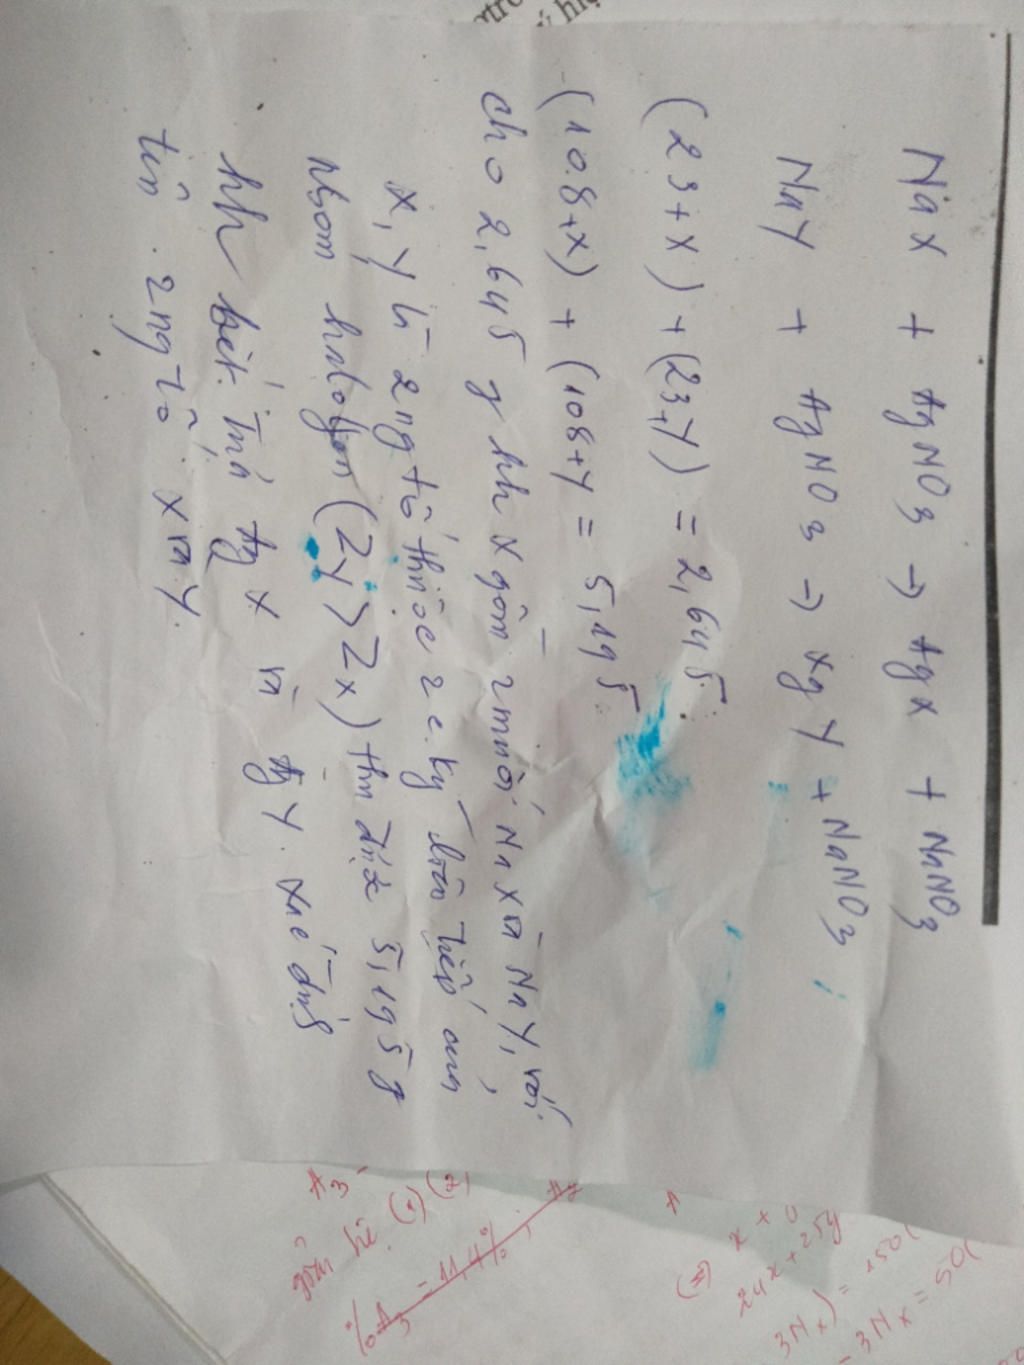 NaX + AgNO3 → AgX + NaNO3
NaY + AgNO3 → AgY + NaNO3
(23+X) + (23+Y) = 2,645
(108+X) + (108+Y = 5,195
cho 2,645 g hh X gồm 2 muối NaX và NaY, với
X, Y là 2 ng tố thuộc 2 c. kỳ liên tiếp của
nhóm halogen (ZY > ZX) thu được 5,195 g
hh kết. Tủa AgX và AgY. Xác định
tên 2 ng tố X và Y.
A3
gồm hệ (1) (2)
%A3 = 11,4%
(2)
x + 0
24x + 25y
3Nx) = 150
- 3Nx = 50